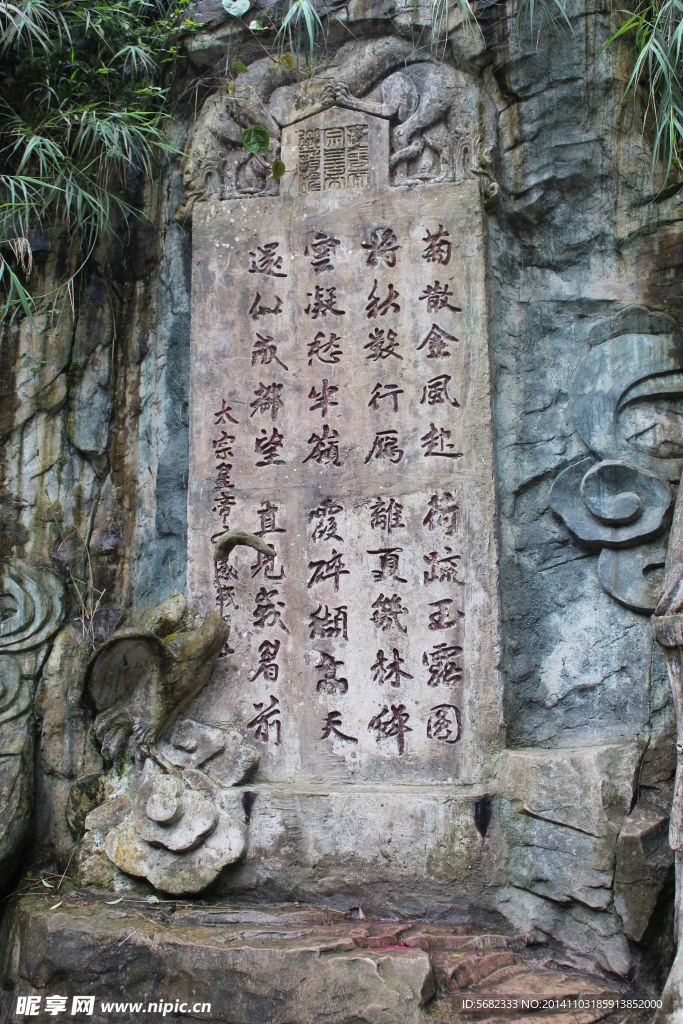 菊散金風起 荷疏玉露圓
將秋數行雁 離夏幾林蟬
雲凝愁半嶺 霞碎纈高天
還似成都望 直見峩眉前
太宗皇帝
昵享网 www.nipic.cn
ID:5682333 NO:20141103185913852000